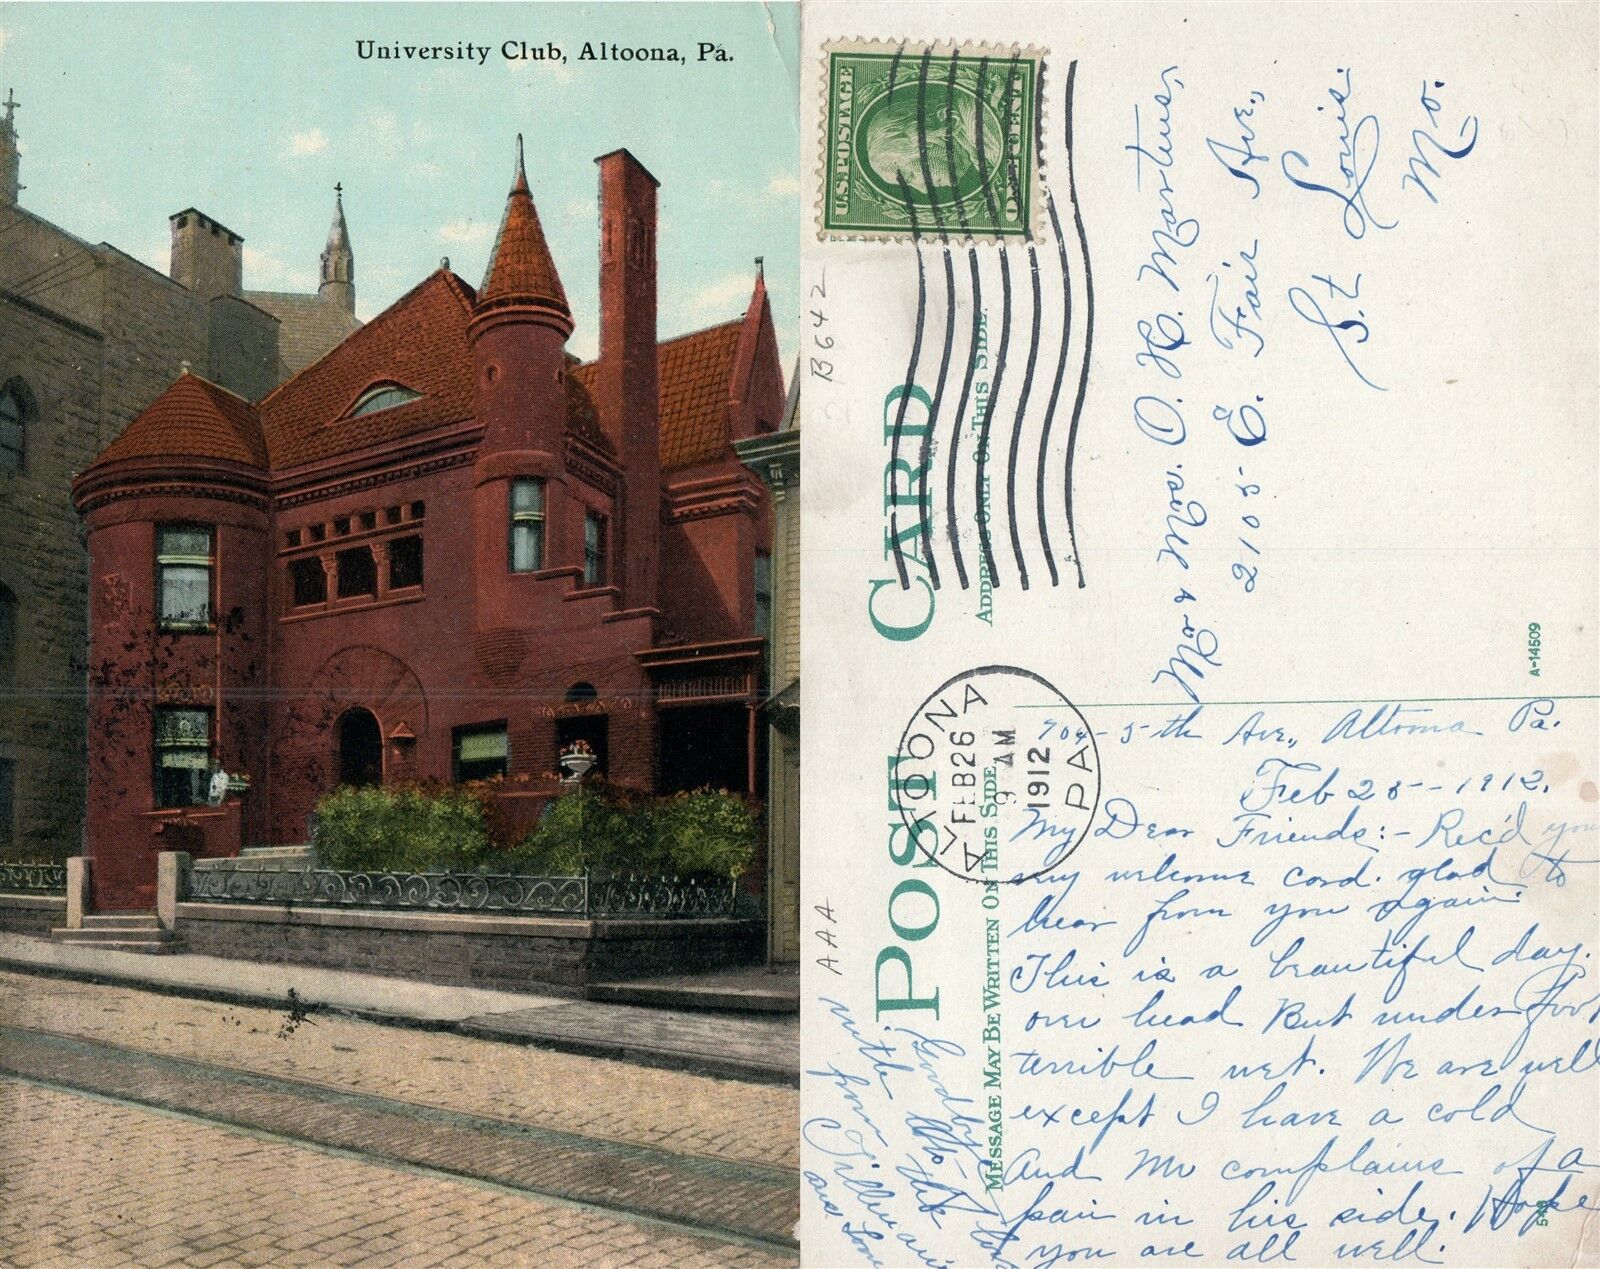 University Club, Altoona, Pa.
U.S. POSTAGE
ONE CENT
B642
AAA
POST CARD
ADDRESS ONLY ON THIS SIDE.
MESSAGE MAY BE WRITTEN ON THIS SIDE
ALTOONA
FEB 26
9 AM
1912
PA
Mr & Mrs. O. H. Martens,
2105 E. Fair Ave.,
St Louis.
Mo.
A-14509
904-5th Ave., Altoona Pa.
Feb 25-1912.
My Dear Friends:- Rec'd your
very welcome card. glad to
hear from you again.
This is a beautiful day.
over head But under foot
terrible wet. We are well
except I have a cold
And Mr complains of a
pain in his side. Hope
you are all well.
Goodbye
with
from
and Love